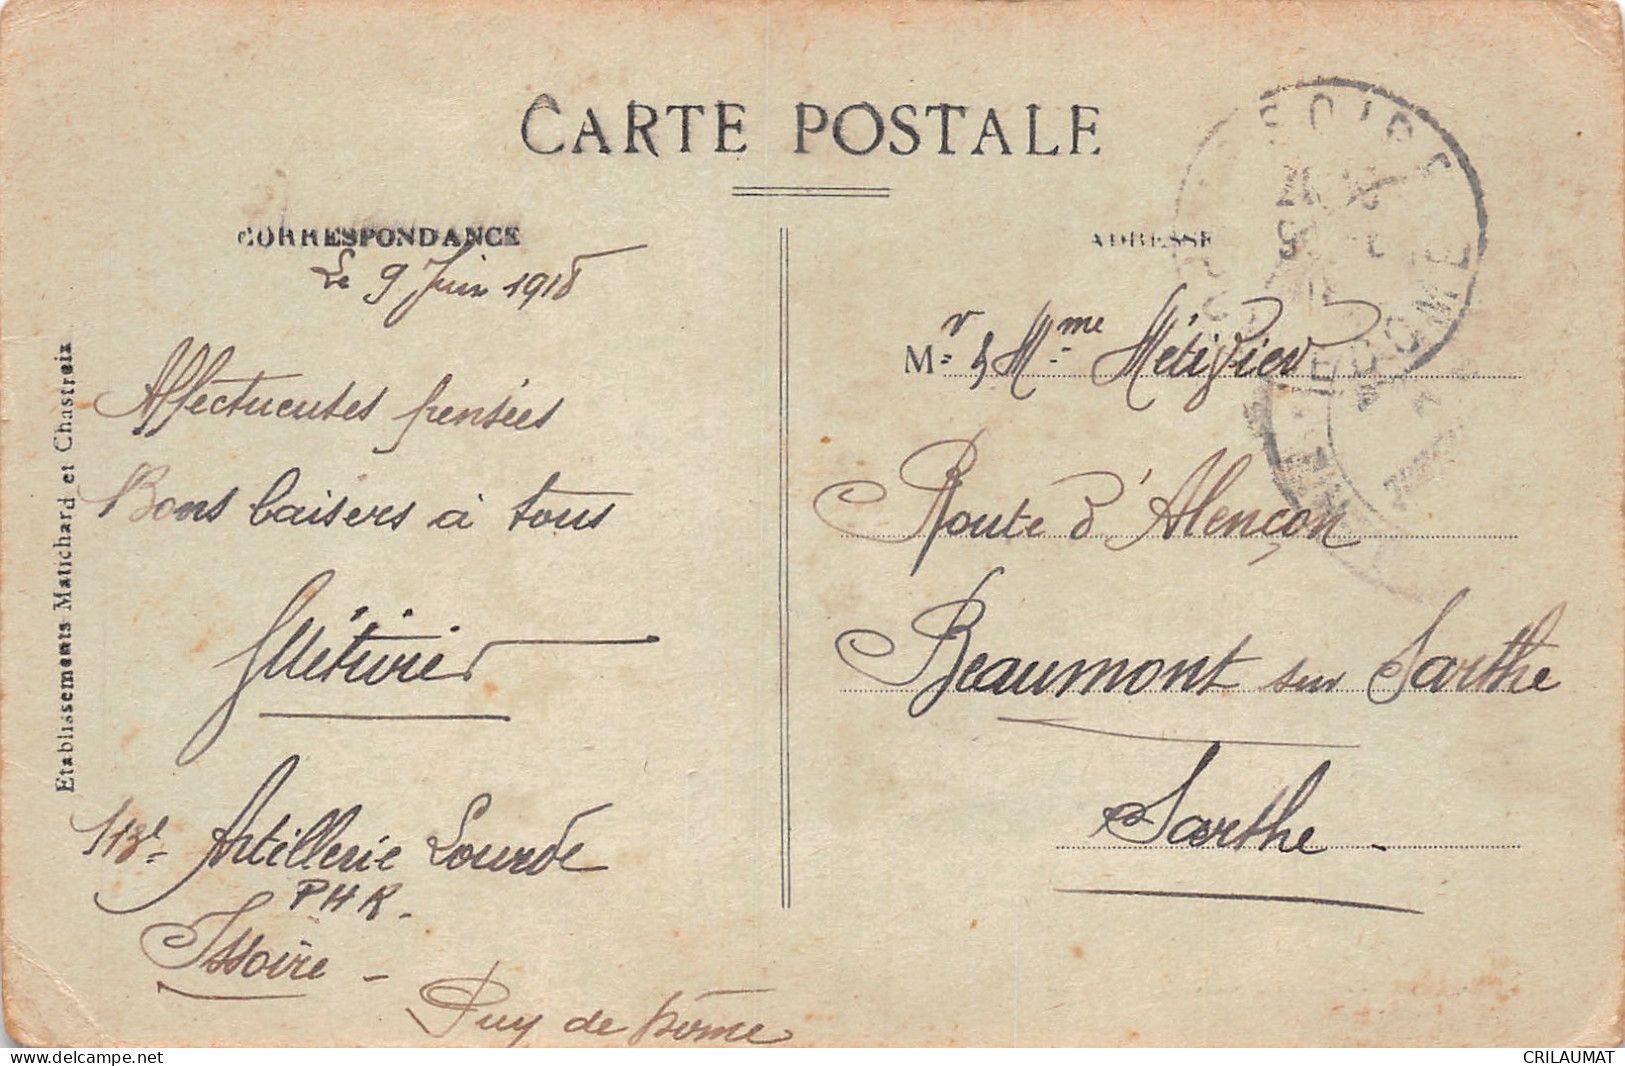 CARTE POSTALE
CORRESPONDANCE
Le 9 Juin 1918
Affectueuses pensées
Bons baisers à tous
GMétivier
113e Artillerie Lourde
PHR.
Issoire -
Puy de Dôme
Etablissements Matichard et Chastreix
ADRESSE
Mr & Mme Métivier
Route d'Alençon
Beaumont sur Sarthe
Sarthe -
DOME
CRILAUMAT